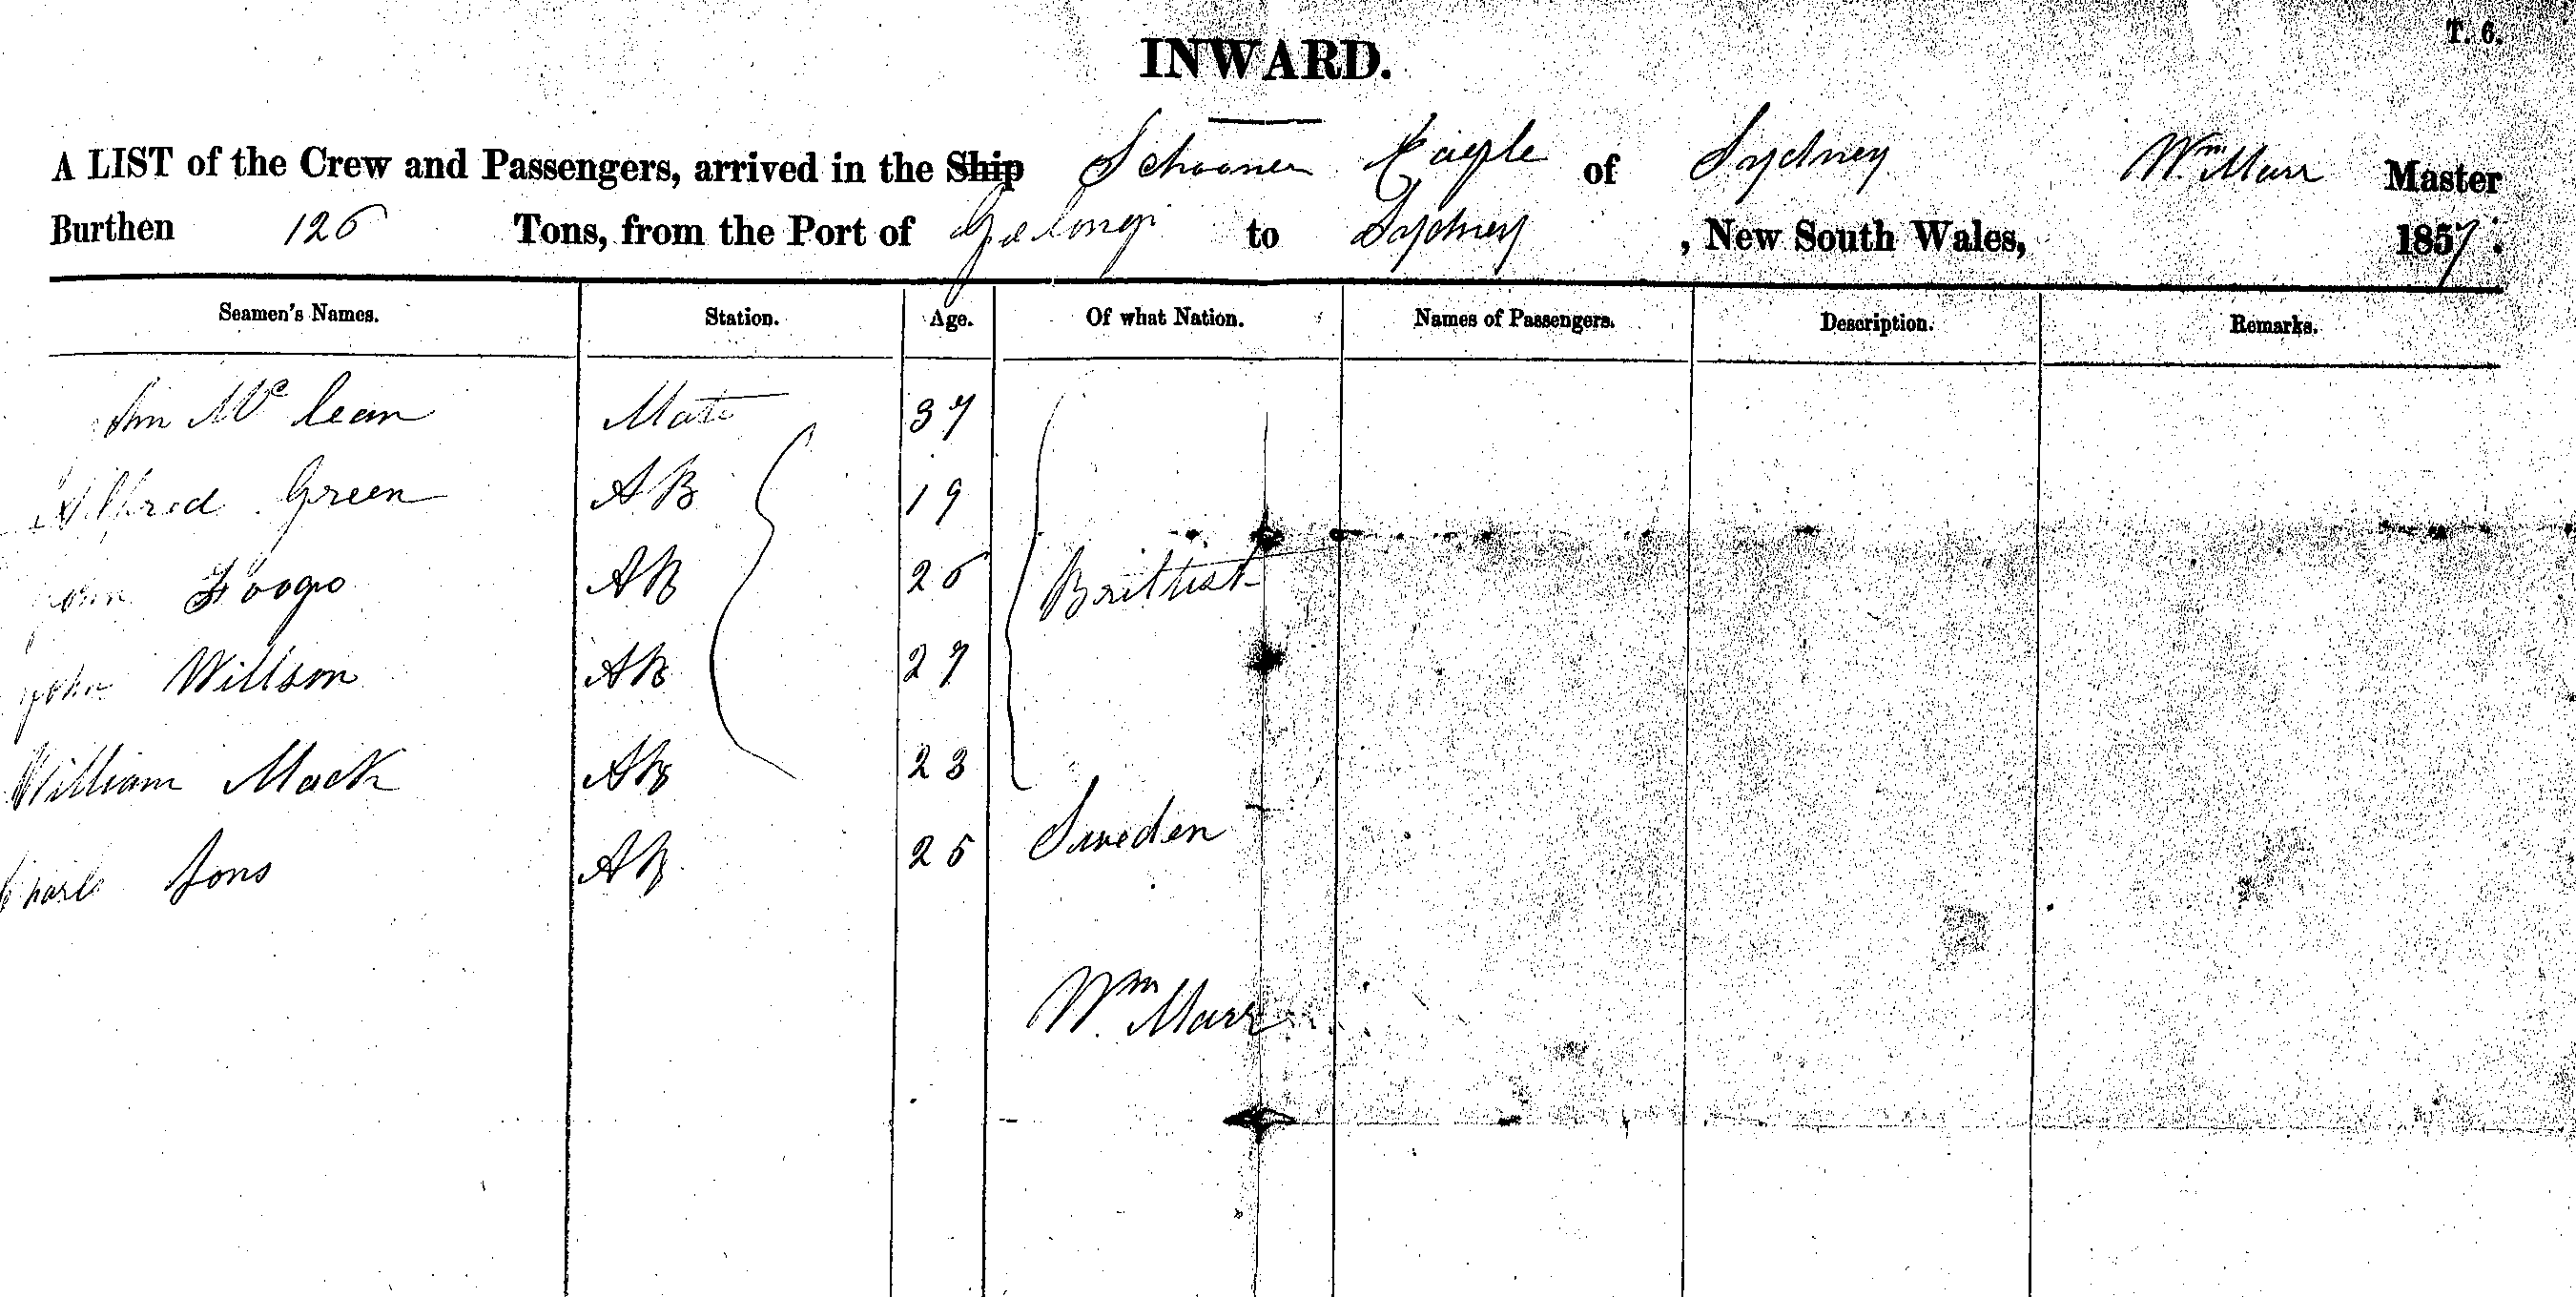 T. 6.
INWARD.
A LIST of the Crew and Passengers, arrived in the Ship Schooner Eagle of Sydney Wm Marr Master
Burthen 126 Tons, from the Port of Gelong to Sydney, New South Wales, 1857.
Seamen's Names. Station. Age. Of what Nation. Names of Passengers. Description. Remarks.
Mc lean Mate 37
Alfred Green AB 19
John Foogo AB 26 Brittish
John Willson AB 27
William Mack AB 23
Charls Jons AB 25 Sweden
Wm Marr